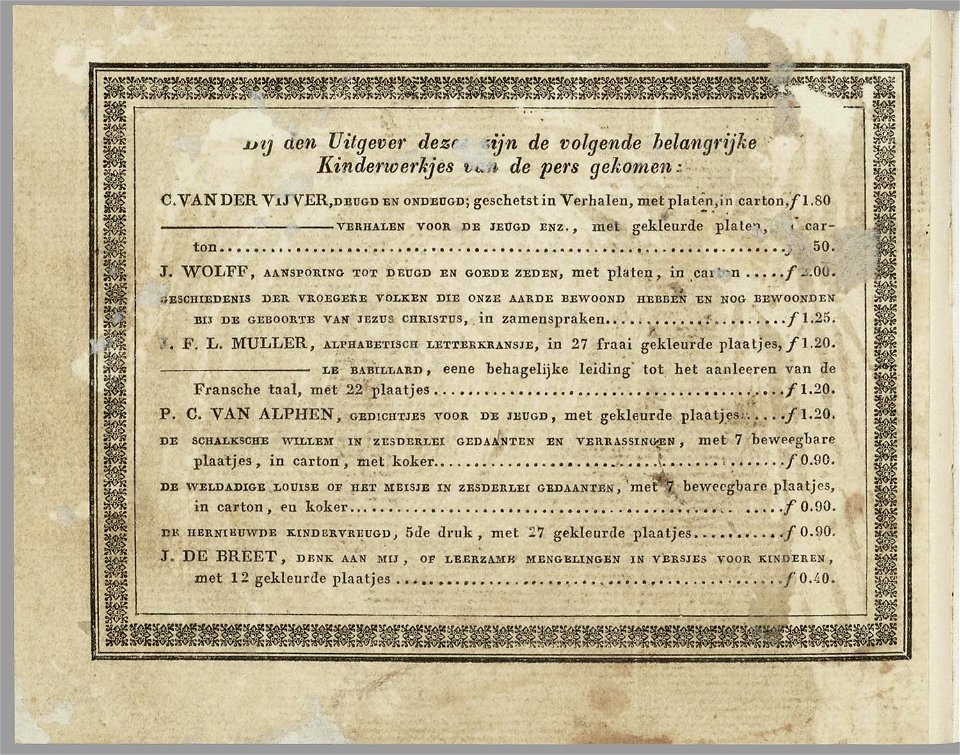 Bij den Uitgever dezes zijn de volgende belangrijke
Kinderwerkjes van de pers gekomen:
C. VAN DER VIJVER, DEUGD EN ONDEUGD; geschetst in Verhalen, met platen, in carton, f 1.80
VERHALEN VOOR DE JEUGD ENZ., met gekleurde platen, car-
ton 50.
J. WOLFF, AANSPORING TOT DEUGD EN GOEDE ZEDEN, met platen, in carton ..... f .00.
GESCHIEDENIS DER VROEGERE VOLKEN DIE ONZE AARDE BEWOOND HEBBEN EN NOG BEWOONDEN
BIJ DE GEBOORTE VAN JEZUS CHRISTUS, in zamenspraken. f 1.25.
J. F. L. MULLER, ALPHABETISCH LETTERKRANSJE, in 27 fraai gekleurde plaatjes, f 1.20.
LE BABILLARD, eene behagelijke leiding tot het aanleeren van de
Fransche taal, met 22 plaatjes f 1.20.
P. C. VAN ALPHEN, GEDICHTJES VOOR DE JEUGD, met gekleurde plaatjes. f 1.20.
DE SCHALKSCHE WILLEM IN ZESDERLEI GEDAANTEN EN VERRASSINGEN, met 7 beweegbare
plaatjes, in carton, met koker. f 0.90.
DE WELDADIGE LOUISE OF HET MEISJE IN ZESDERLEI GEDAANTEN, met 7 beweegbare plaatjes,
in carton, en koker. f 0.90.
DE HERNIEUWDE KINDERVREUGD, 5de druk, met 27 gekleurde plaatjes. f 0.90.
J. DE BREET, DENK AAN MIJ, OF LEERZAME MENGELINGEN IN VERSJES VOOR KINDEREN,
met 12 gekleurde plaatjes f 0.40.